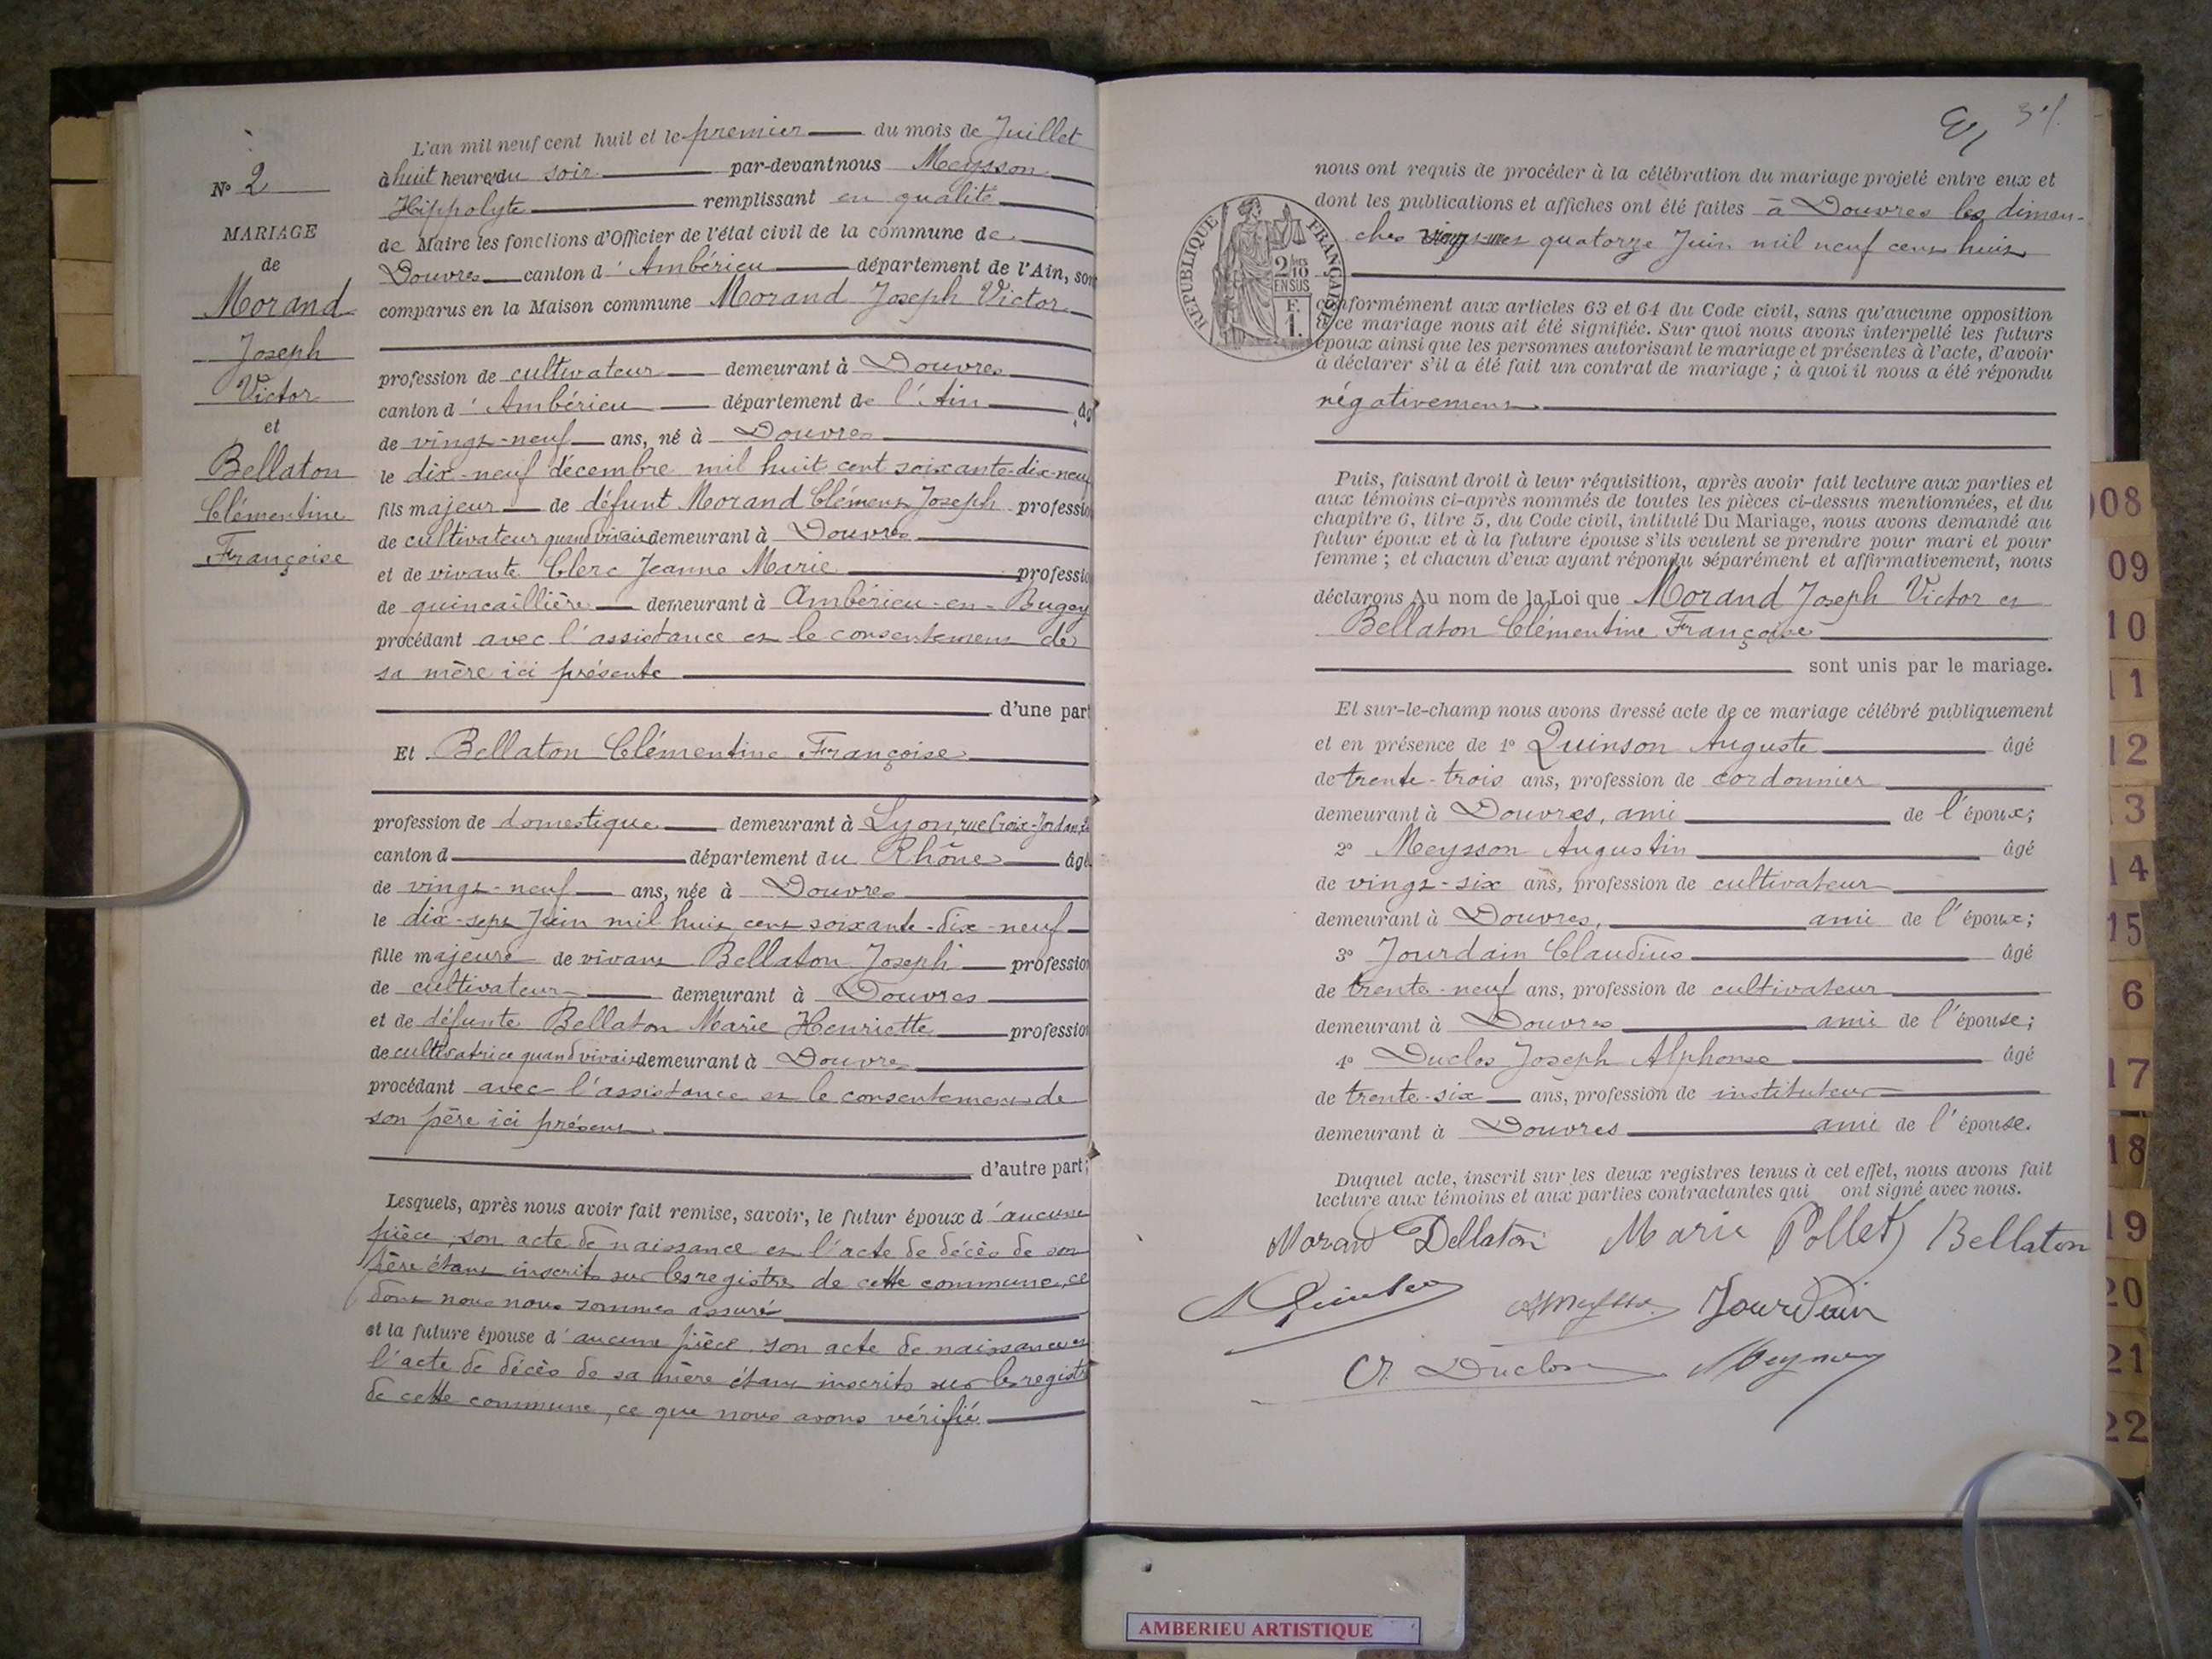 N° 2
MARIAGE
de
Morand
Joseph
Victor
et
Bellaton
Clémentine
Françoise
L'an mil neuf cent huit et le premier du mois de Juillet
à huit heures du soir par-devant nous Meysson
Hippolyte remplissant en qualité
de Maire les fonctions d'Officier de l'état civil de la commune de
Douvres canton d'Ambérieu département de l'Ain, son
comparus en la Maison commune Morand Joseph Victor
profession de cultivateur demeurant à Douvres
canton d'Ambérieu département de l'Ain
de vingt-neuf ans, né à Douvres
le dix-neuf décembre mil huit cent soixante-dix-neuf
fils majeur de défunt Morand Clément Joseph professio
de cultivateur quand vivait demeurant à Douvres
et de vivante Clerc Jeanne Marie professio
de quincaillière demeurant à Ambérieu-en-Bugey
procédant avec l'assistance et le consentement de
sa mère ici présente
d'une part
Et Bellaton Clémentine Françoise
profession de domestique demeurant à Lyon, rue Croix-Jordan,
canton d département du Rhône âgé
de vingt-neuf ans, née à Douvres
le dix-sept Juin mil huit cent soixante-dix-neuf
fille majeure de vivant Bellaton Joseph profession
de cultivateur demeurant à Douvres
et de défunte Bellaton Marie Henriette profession
de cultivatrice quand vivait demeurant à Douvres
procédant avec l'assistance et le consentement de
son père ici présent
d'autre part;
Lesquels, après nous avoir fait remise, savoir, le futur époux d'aucune
pièce, son acte de naissance et l'acte de décès de son
père étant inscrits sur les registres de cette commune, ce
dont nous nous sommes assuré
et la future épouse d'aucune pièce son acte de naissance et
l'acte de décès de sa mère étant inscrits sur les registr
de cette commune, ce que nous avons vérifié
nous ont requis de procéder à la célébration du mariage projeté entre eux et
dont les publications et affiches ont été faites à Douvres les diman-
ches quatorze Juin mil neuf cent huit
REPUBLIQUE FRANÇAISE
2/10
EN SUS
F.
1.
conformément aux articles 63 et 64 du Code civil, sans qu'aucune opposition
à ce mariage nous ait été signifiée. Sur quoi nous avons interpellé les futurs
époux ainsi que les personnes autorisant le mariage et présentes à l'acte, d'avoir
à déclarer s'il a été fait un contrat de mariage ; à quoi il nous a été répondu
négativement.
Puis, faisant droit à leur réquisition, après avoir fait lecture aux parties et
aux témoins ci-après nommés de toutes les pièces ci-dessus mentionnées, et du
chapitre 6, titre 5, du Code civil, intitulé Du Mariage, nous avons demandé au
futur époux et à la future épouse s'ils veulent se prendre pour mari et pour
femme ; et chacun d'eux ayant répondu séparément et affirmativement, nous
déclarons Au nom de la Loi que Morand Joseph Victor et
Bellaton Clémentine Françoise
sont unis par le mariage.
Et sur-le-champ nous avons dressé acte de ce mariage célébré publiquement
et en présence de 1° Quinson Auguste âgé
de trente-trois ans, profession de cordonnier
demeurant à Douvres, ami de l'époux;
2° Meysson Augustin âgé
de vingt-six ans, profession de cultivateur
demeurant à Douvres, ami de l'époux;
3° Jourdain Claudius âgé
de trente-neuf ans, profession de cultivateur
demeurant à Douvres ami de l'épouse;
4° Duclos Joseph Alphonse âgé
de trente-six ans, profession de instituteur
demeurant à Douvres ami de l'épouse.
Duquel acte, inscrit sur les deux registres tenus à cet effet, nous avons fait
lecture aux témoins et aux parties contractantes qui ont signé avec nous.
Morand Bellaton Marie Pollet Bellaton
Jourdain
Duclos
08
09
10
11
12
13
14
15
6
17
18
19
20
21
22
AMBERIEU ARTISTIQUE